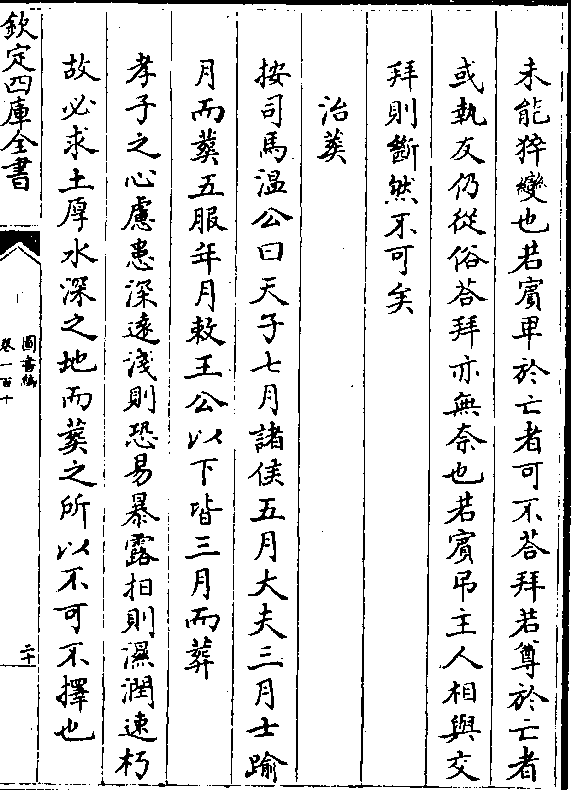 未能猝變也若賓卑於亡者可不荅拜若尊於亡者
或執友仍從俗荅拜亦無奈也若賓吊主人相與交
拜則斷然不可矣
治葬
按司馬溫公曰天子七月諸侯五月大夫三月士踰
月而葬五服年月敕王公以下皆三月而葬
孝子之心慮患深遠淺則恐易暴露抇則濕潤速朽
故必求土厚水深之地而葬之所以不可不擇也
欽定四庫全書
圖書編
卷一百十
二十